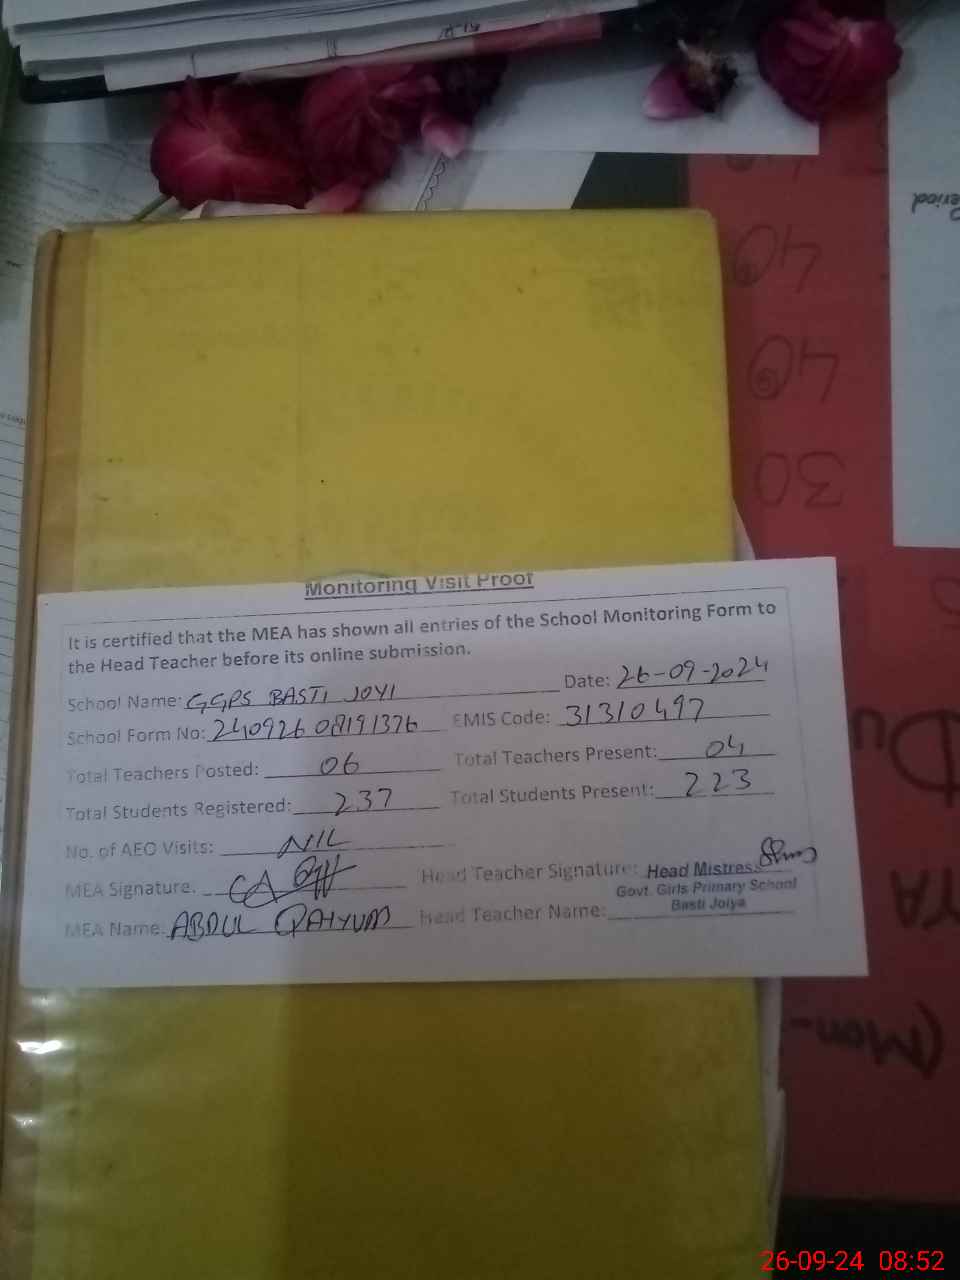 Period
40
40
30
Monitoring Visit Proof
It is certified that the MEA has shown all entries of the School Monitoring Form to
the Head Teacher before its online submission.
School Name: GGPS BASTI JOYI Date: 26-09-2024
School Form No: 24092608191376 EMIS Code: 31310497
Total Teachers Posted: 06 Total Teachers Present: 04
Total Students Registered: 237 Total Students Present: 223
No. of AEO Visits: NIL
MEA Signature. Head Teacher Signature: Head Mistress
Govt. Girls Primary School
Basti Joiya
MEA Name: ABDUL QAIYUM Head Teacher Name:
(Mon-
26-09-24 08:52